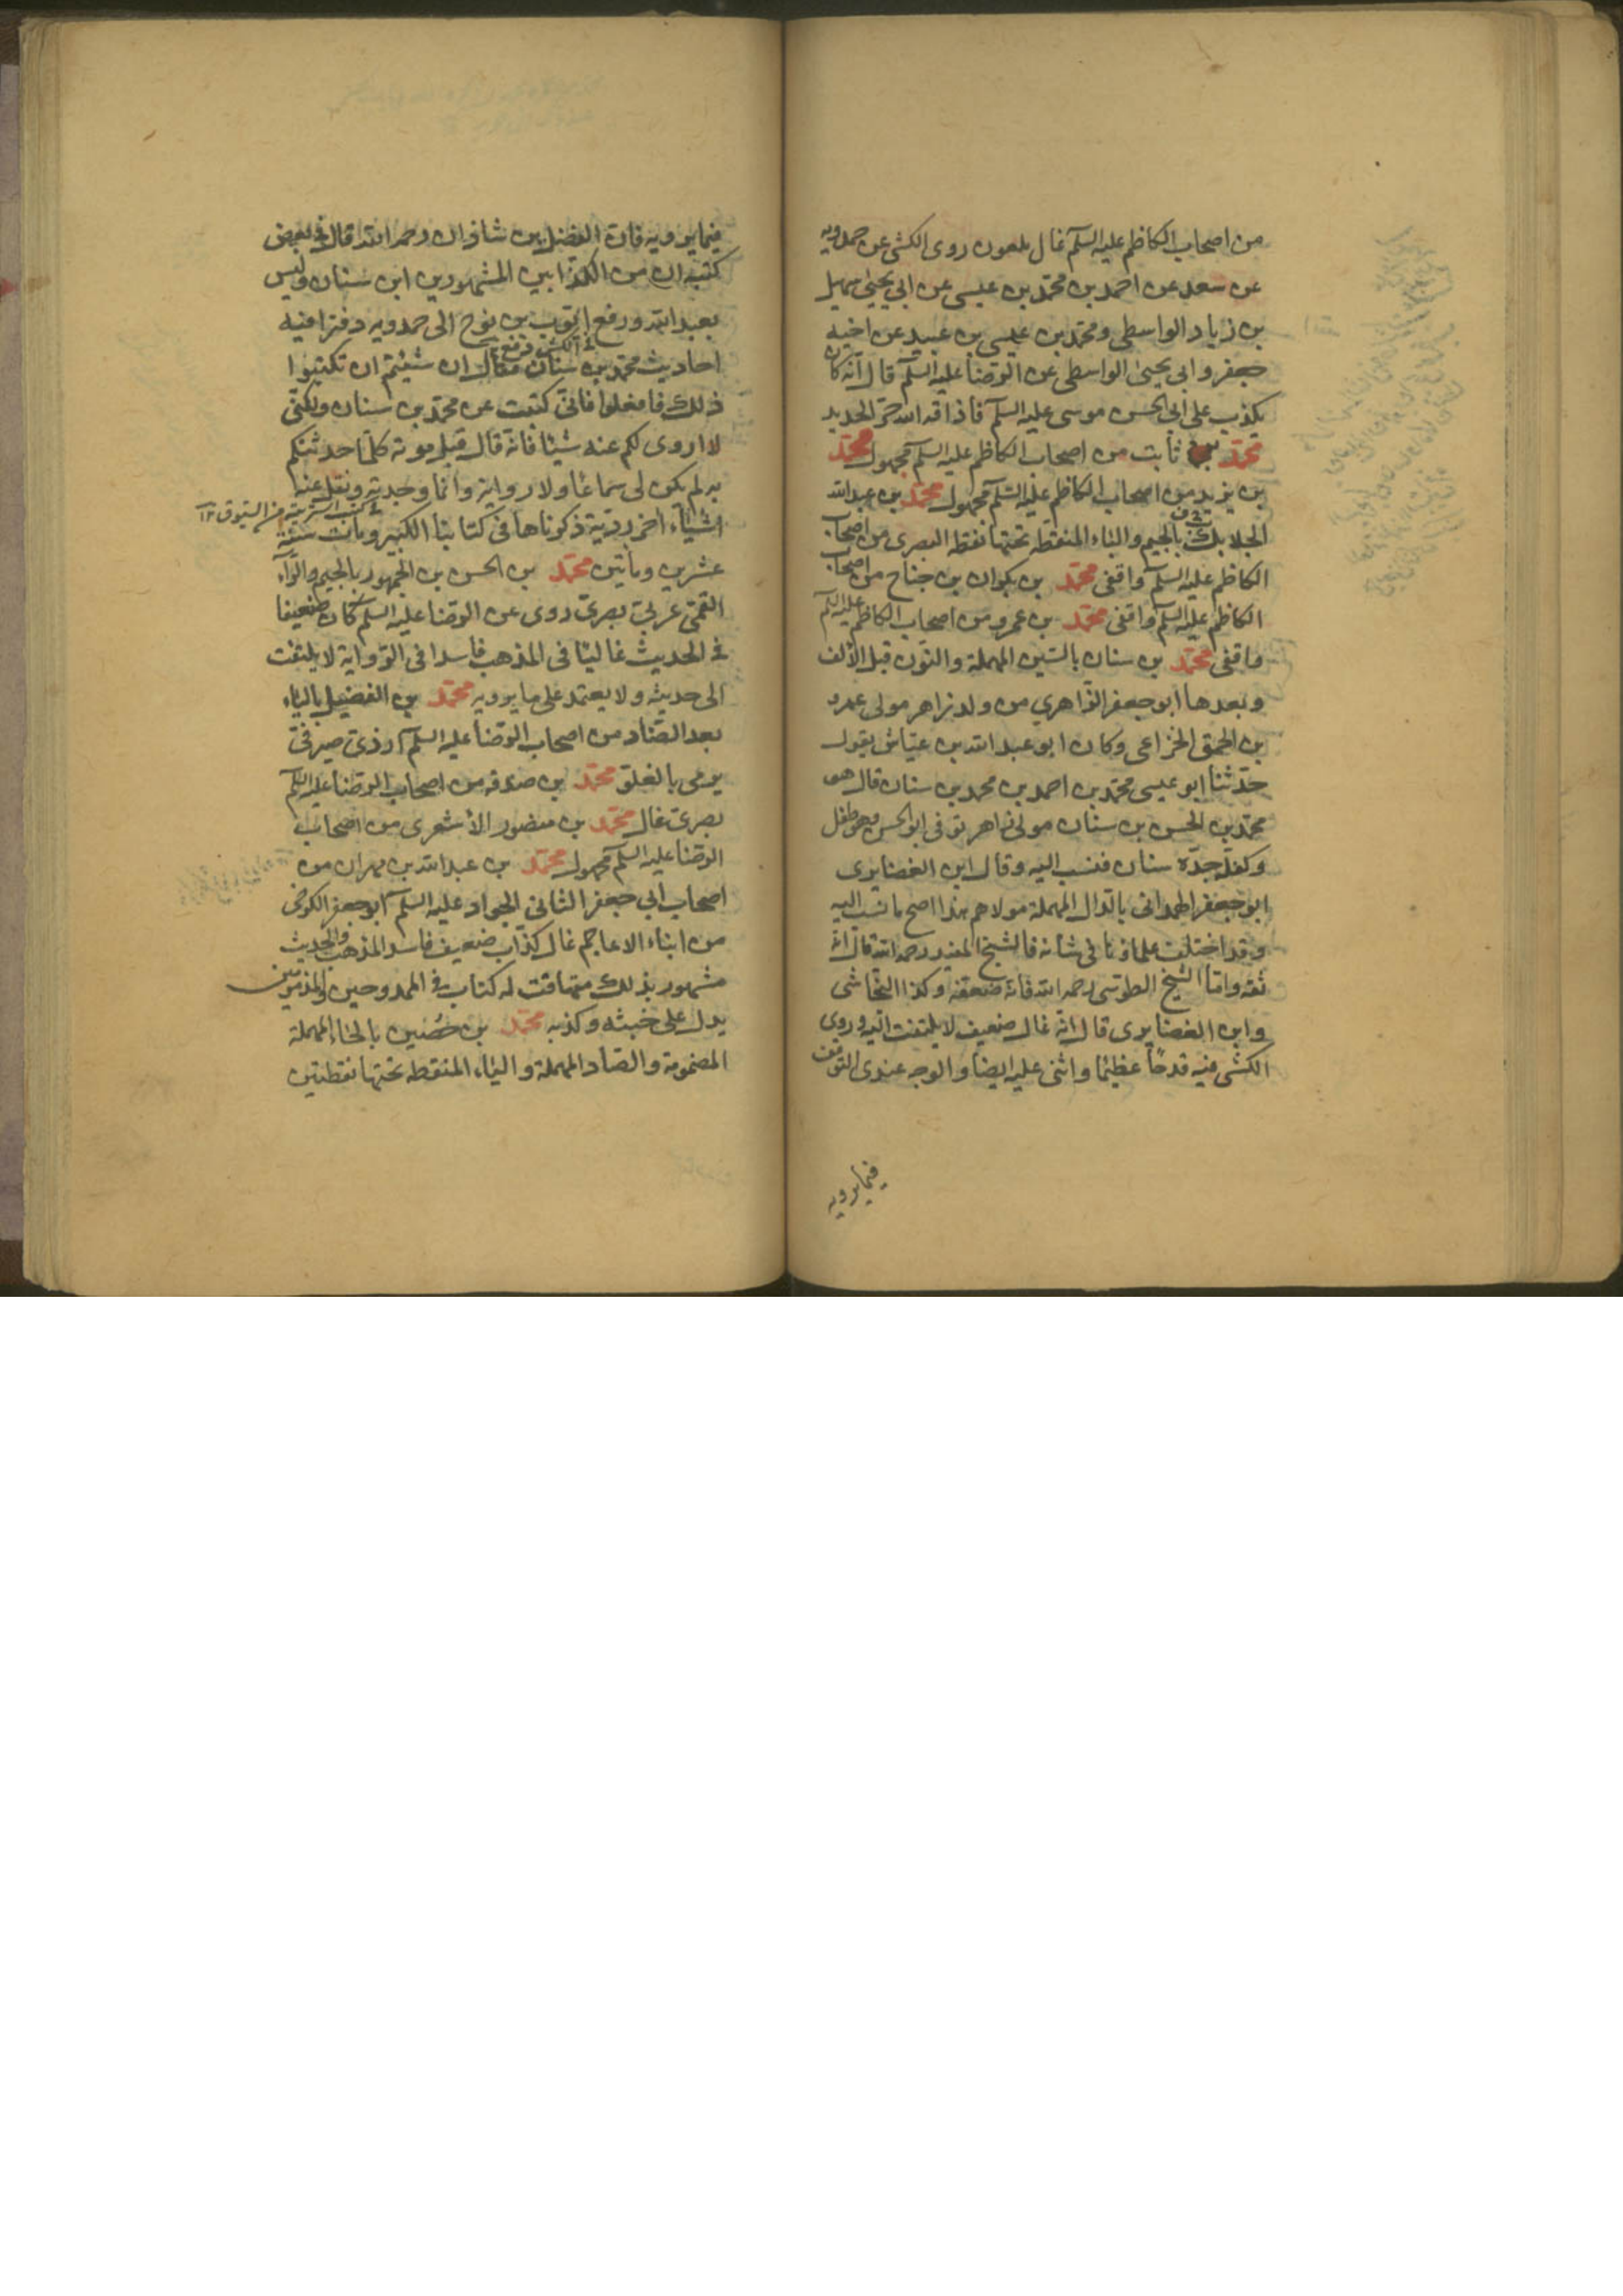 من اصحاب الكاظم عليه السلم غال ملعون روى الكشى عن حمدويه
عن سعد عن احمد بن محمد بن عيسى عن ابي يحيى سهيل
بن زياد الواسطى ومحمد بن عيسى بن عبيد عن اخيه
جعفر وابى يحيى الواسطى عن الرضا عليه السلم قال انه كان
يكذب على ابى الحسن موسى عليه السلم فاذاقه الله حر الحديد
محمد بن ثابت من اصحاب الكاظم عليه السلم مجهول محمد
بن يزيد من اصحاب الكاظم عليه السلم مجهول محمد بن عبدالله
الجلاب بالجيم والباء المنقطه تحتها نقطه البصرى من اصحاب
الكاظم عليه السلم واقفى محمد بن بكران بن جناح من اصحاب
الكاظم عليه السلم واقفى محمد بن عمرو من اصحاب الكاظم عليه السلم
واقفى محمد بن سنان بالسين المهملة والنون قبل الألف
وبعدها ابو جعفر الزاهري من ولد زاهر مولى عمرو
بن الحمق الخزاعى وكان ابو عبد الله بن عياش يقول
حدثنا ابو عيسى محمد بن احمد بن محمد بن سنان قال هو
محمد بن الحسن بن سنان مولى زاهر توفى ابو الحسن وهو طفل
وكفله جده سنان فنسب اليه وقال ابن الغضايرى
ابو جعفر الهمدانى بالدال المهملة مولاهم هذا اصح ما نسب اليه
وقد اختلف علماؤنا في شانه فالشيخ المفيد رحمه الله قال انه
ثقه واما الشيخ الطوسى رحمه الله فانه ضعفه وكذا النجاشى
وابن الغضايرى قال انه غال ضعيف لا يلتفت اليه وروى
الكشى فيه قدحا عظيما واثنى عليه ايضا والوجه عندى التوقف
فيما يرويه
فيما يرويه فان الفضل بن شاذان رحمه الله قال في بعض
كتبه ان من الكذابين المشهورين ابن سنان وليس
بعبد الله ورفع ايوب بن نوح الى حمدويه دفترا فيه
احاديث محمد بن سنان فقال ان شئتم ان تكتبوا
ذلك فافعلوا فانى كتبت عن محمد بن سنان ولكنى
لا اروى لكم عنه شيئا فانه قال قبل موته كلما حدثتكم
به لم يكن لى سماعا ولا رواية وانما وجدته ونقل عنه
اشياء اخر ردية ذكرناها فى كتابنا الكبير ومات سنة
عشرين ومأتين محمد بن الحسن بن الجمهور بالجيم والراء
القمى عربى بصرى روى عن الرضا عليه السلم كان ضعيفا
في الحديث غاليا فى المذهب فاسدا فى الرواية لا يلتفت
الى حديثه ولا يعتمد على ما يرويه محمد بن الفضيل بالياء
بعد الضاد من اصحاب الرضا عليه السلم ازدى صيرفى
يرمى بالغلو محمد بن صدقه من اصحاب الرضا عليه السلم
بصرى غال محمد بن منصور الأشعرى من اصحاب
الرضا عليه السلم مجهول محمد بن عبد الله بن مهران من
اصحاب ابي جعفر الثانى الجواد عليه السلم ابو جعفر الكرخى
من ابناء الاعاجم غال كذاب ضعيف فاسد المذهب والحديث
مشهور بذلك متهافت له كتاب في الممدوحين والمذمومين
يدل على خبثه وكذبه محمد بن حُصَين بالحاء المهملة
المضمومة والصاد المهملة والياء المنقطه تحتها نقطتين